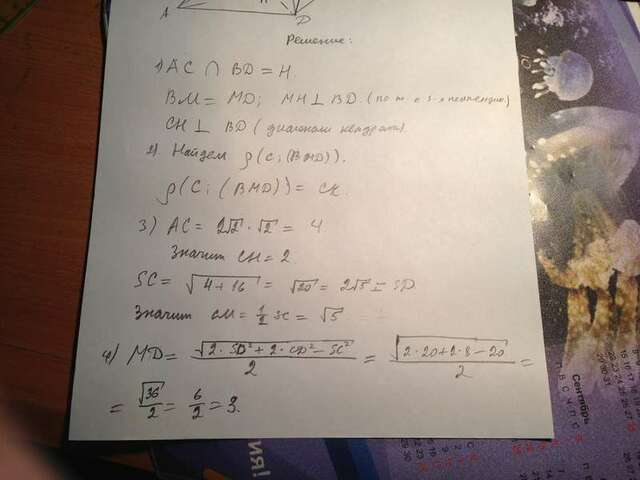 A
D
Решение:
1) AC ∩ BD = H.
BM = MD; MH ⊥ BD. (по т. о 3-х перпендик.)
CH ⊥ BD (диагонали квадрата).
2) Найдем ρ(C; (BMD)).
ρ(C; (BMD)) = CK.
3) AC = 2√2 · √2 = 4
Значит CH = 2
SC = √(4+16) = √20 = 2√5 = SD.
Значит CM = 1/2 SC = √5
4) MD = √(2·SD² + 2·CD² − SC²)/2 = √(2·20+2·8−20)/2 =
= √36/2 = 6/2 = 3.
Сентябрь